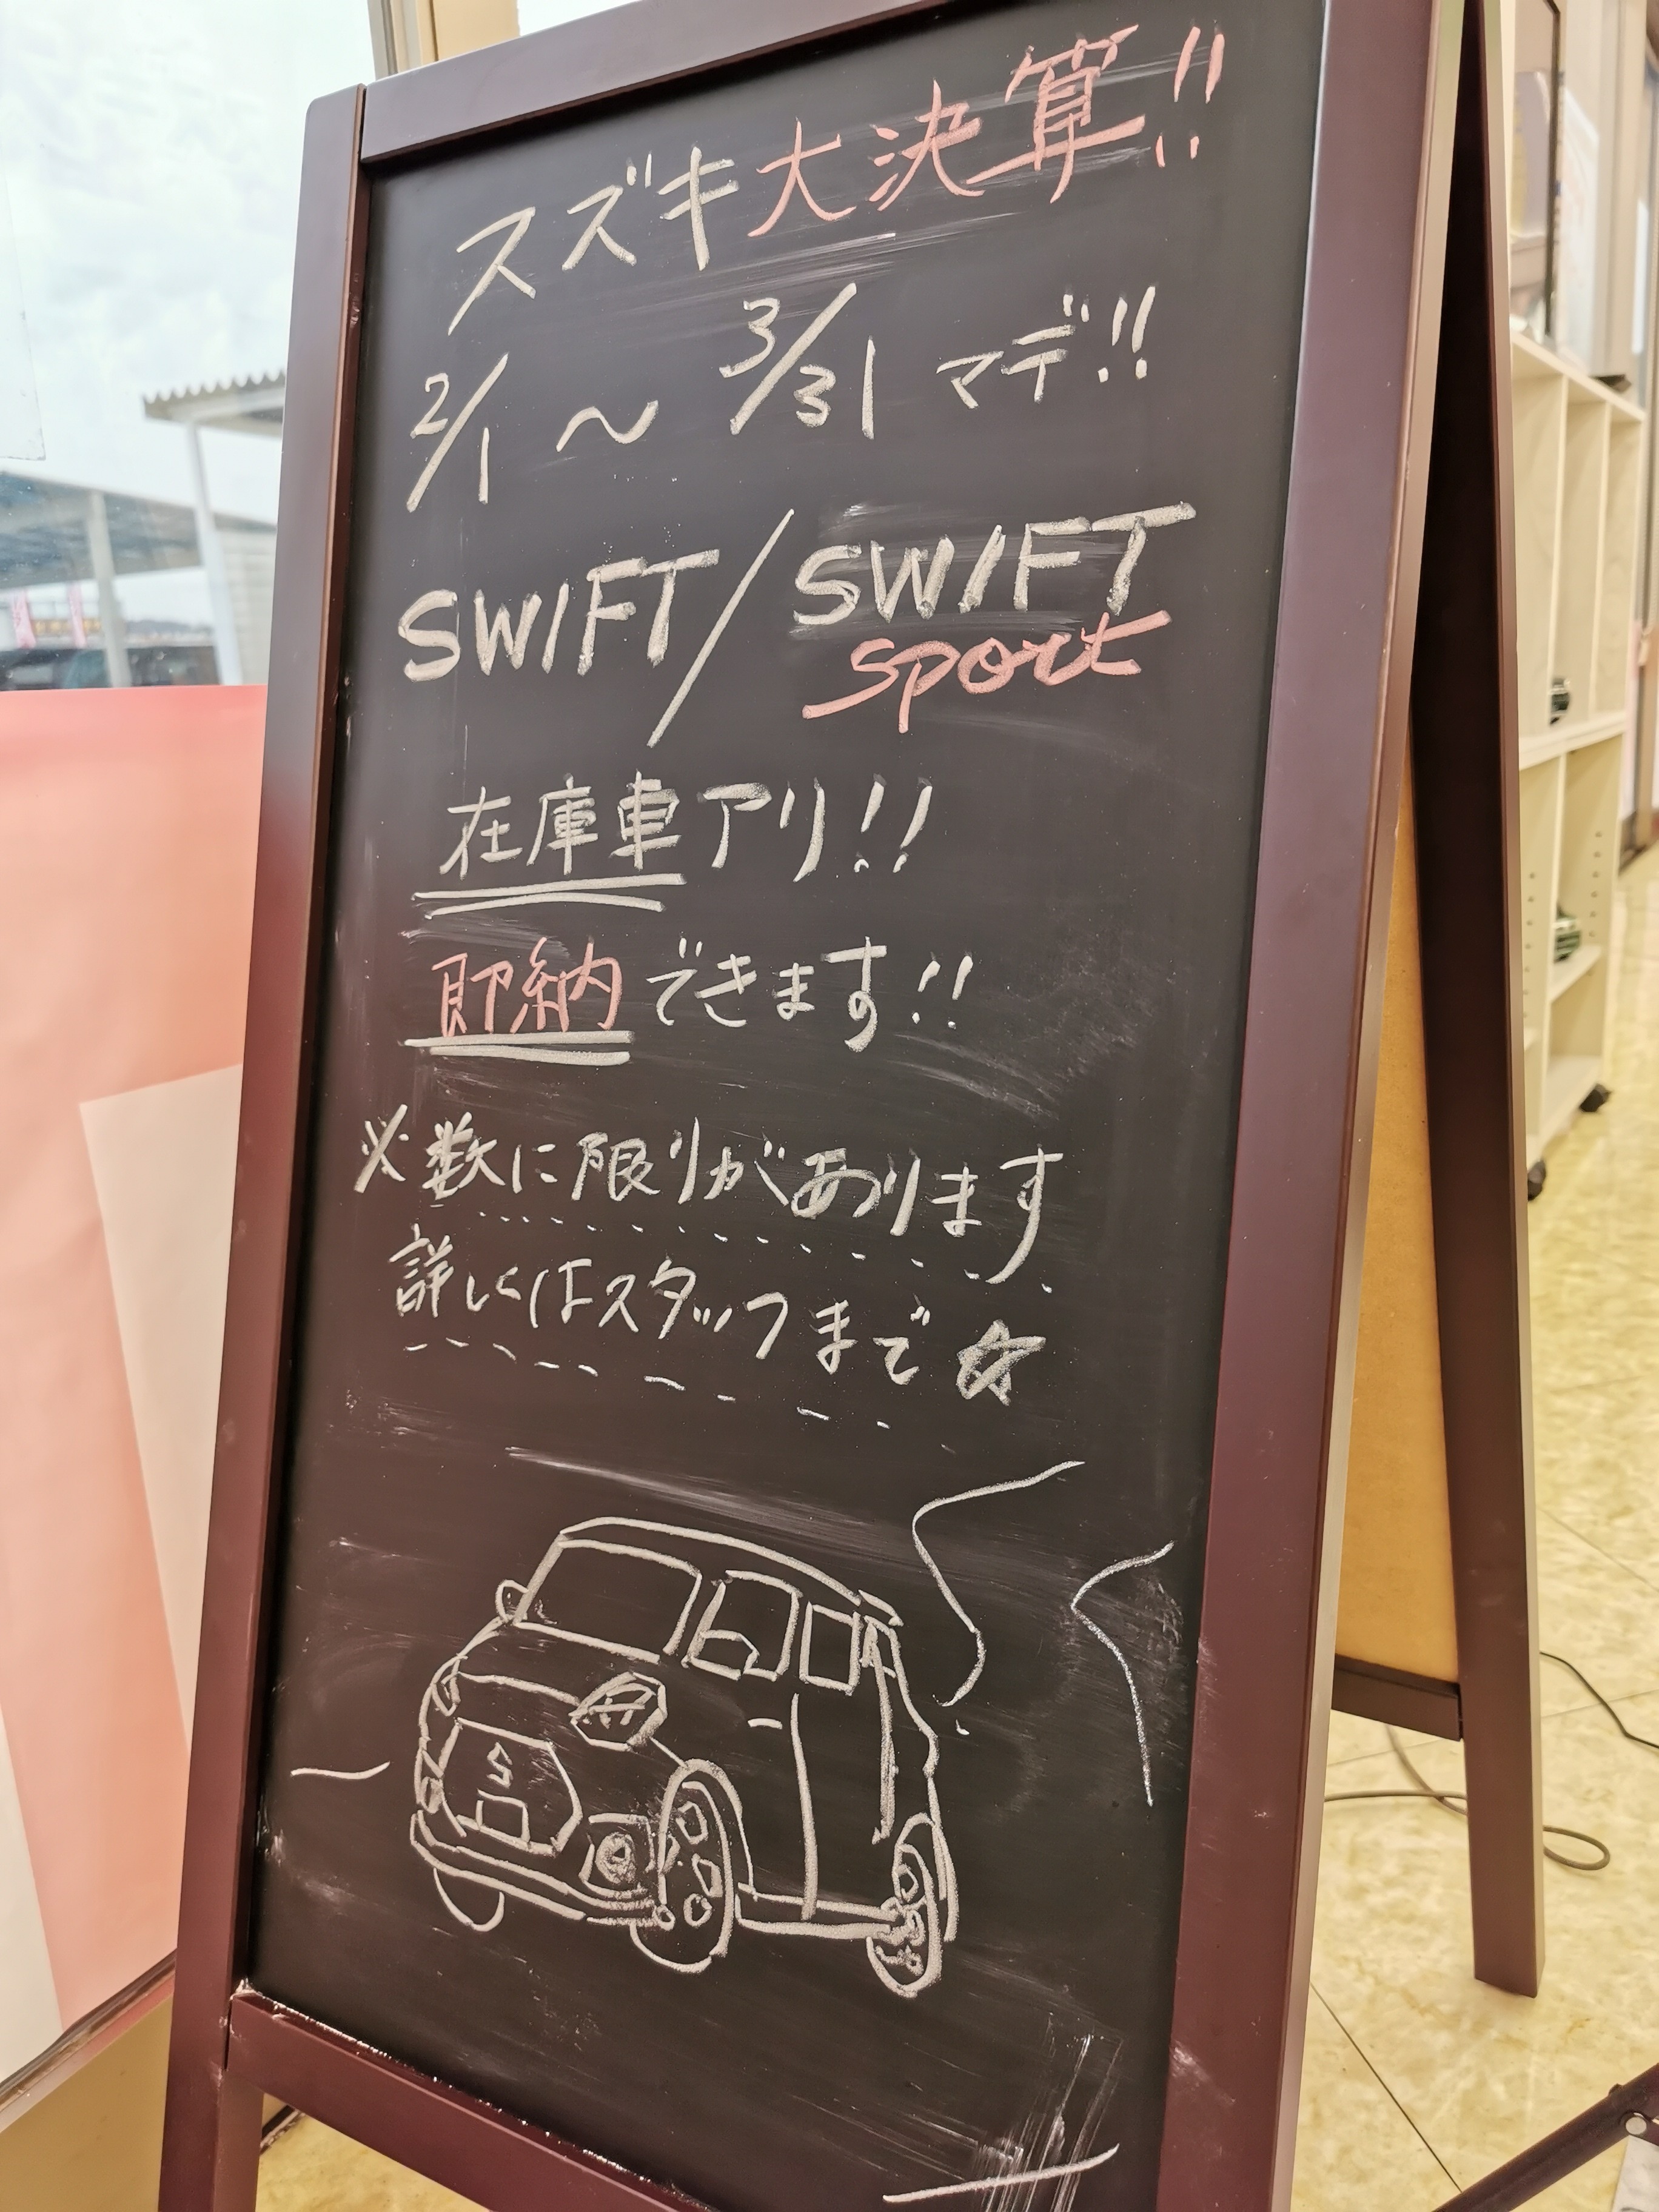 スズキ大決算!!
2/1 〜 3/31 マデ!!
SWIFT/SWIFT
sport
在庫車アリ!!
即納できます!!
※数に限りがあります
詳しくはスタッフまで☆
S